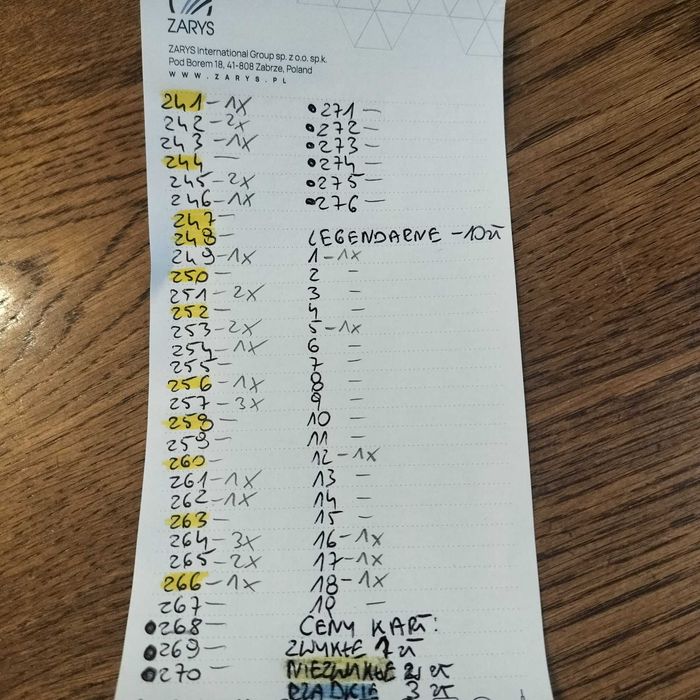 ZARYS
ZARYS International Group sp. z o.o. sp.k.
Pod Borem 18, 41-808 Zabrze, Poland
WWW.ZARYS.PL
241-1X
242-2X
243-1X
244-
245-2X
246-1X
247-
248-
249-1X
250-
251-2X
252-
253-2X
254-1X
255-
256-1X
257-3X
258-
259-
260-
261-1X
262-1X
263-
264-3X
265-2X
266-1X
267-
•268-
•269-
•270-
•271-
•272-
•273-
•274-
•275-
•276-
LEGENDARNE -10zł
1-1x
2 -
3 -
4 -
5-1x
6 -
7 -
8 -
9 -
10 -
11 -
12-1x
13 -
14 -
15 -
16-1x
17-1x
18-1x
19 -
CENY KART:
ZWYKŁE 1 zł
NIEZWYKŁE 2 zł
RZADKIE 3 zł